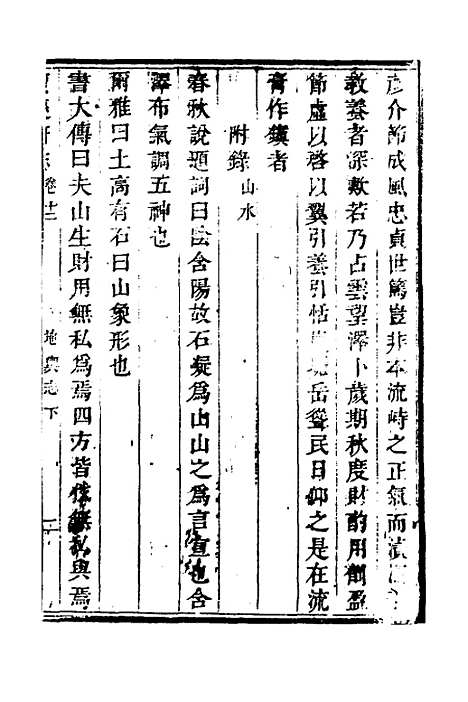 彦介節成風忠貞世篤豈非本流峙之正氣而
教養者深歟若乃占雲望澤卜歲期秋度財酌用劑盈
節虛以啓以翼引養引恬岳聳民日仰之是在流
膏作鎮者
附錄山水
春秋說題詞曰陰含陽故石凝爲山山之爲言宣也含
澤布氣調五神也
爾雅曰土高有石曰山象形也
書大傳曰夫山生財用無私爲焉四方皆伐無私與焉
卷十二
地輿志下